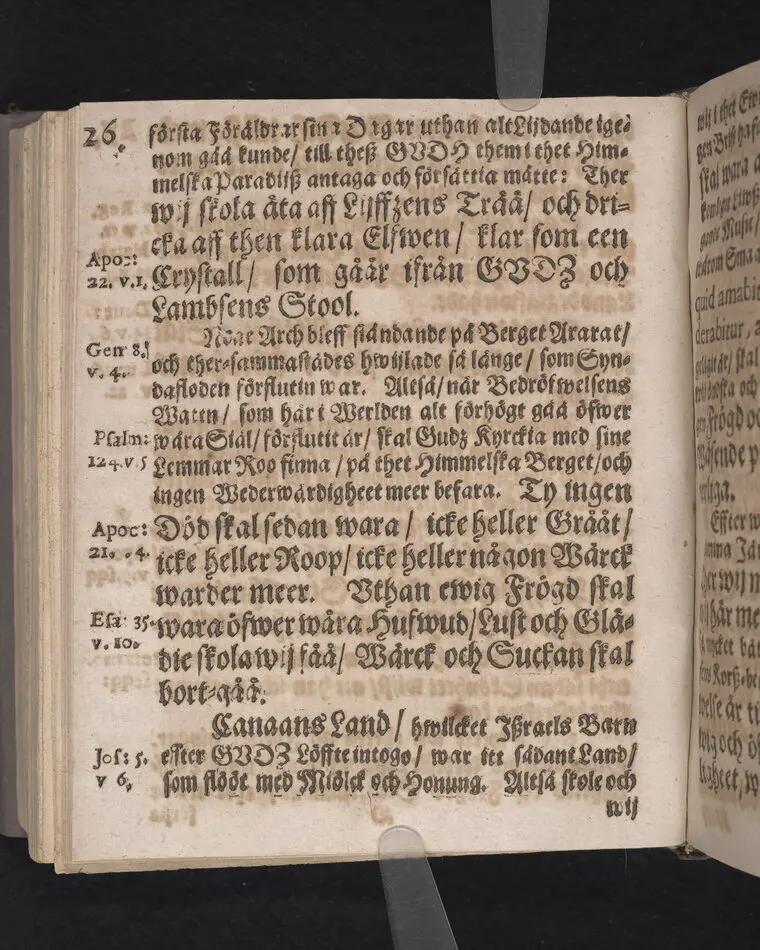 26.
första Föräldrar sina Dagar uthan alt Lijdande ige-
nom gåå kunde/ till theß GVDH them i thet Him-
melska Paradijß antaga och försättia måtte: Ther
wij skola äta aff Lijffzens Trää/ och dri-
cka aff then klara Elfwen/ klar som een
Apoc:
22. v.1,
Crystall/ som gåår ifrån GVDZ och
Lambsens Stool.
Noae Arch bleff ståndande på Berget Ararat/
Gen 8.
v. 4.
och ther-sammastädes hwijlade så länge/ som Syn-
dafloden förflutin war. Altså/ när Bedröfwelsens
Watn/ som här i Werlden alt förhögt gåå öfwer
Psalm:
124. v 5
wåra Siäl/ förflutit är/ skal Gudz Kyrckia med sine
Lemmar Roo finna/ på thet Himmelska Berget/ och
ingen Wederwärdigheet meer befara. Ty ingen
Apoc:
21. . 4.
Död skal sedan wara/ icke heller Grååt/
icke heller Roop/ icke heller någon Wärck
warder meer. Vthan ewig Frögd skal
Esa: 35.
v. 10.
wara öfwer wåra Hufwud/ Lust och Glä-
die skola wij fåå/ Wärck och Suckan skal
bort-gåå.
Canaans Land/ hwilcket Ißraels Barn
Jos: 5.
v 6,
effter GVDZ Löffte intogo/ war itt sådant Land/
som flööt med Miölck och Honung. Altså skole och
wij